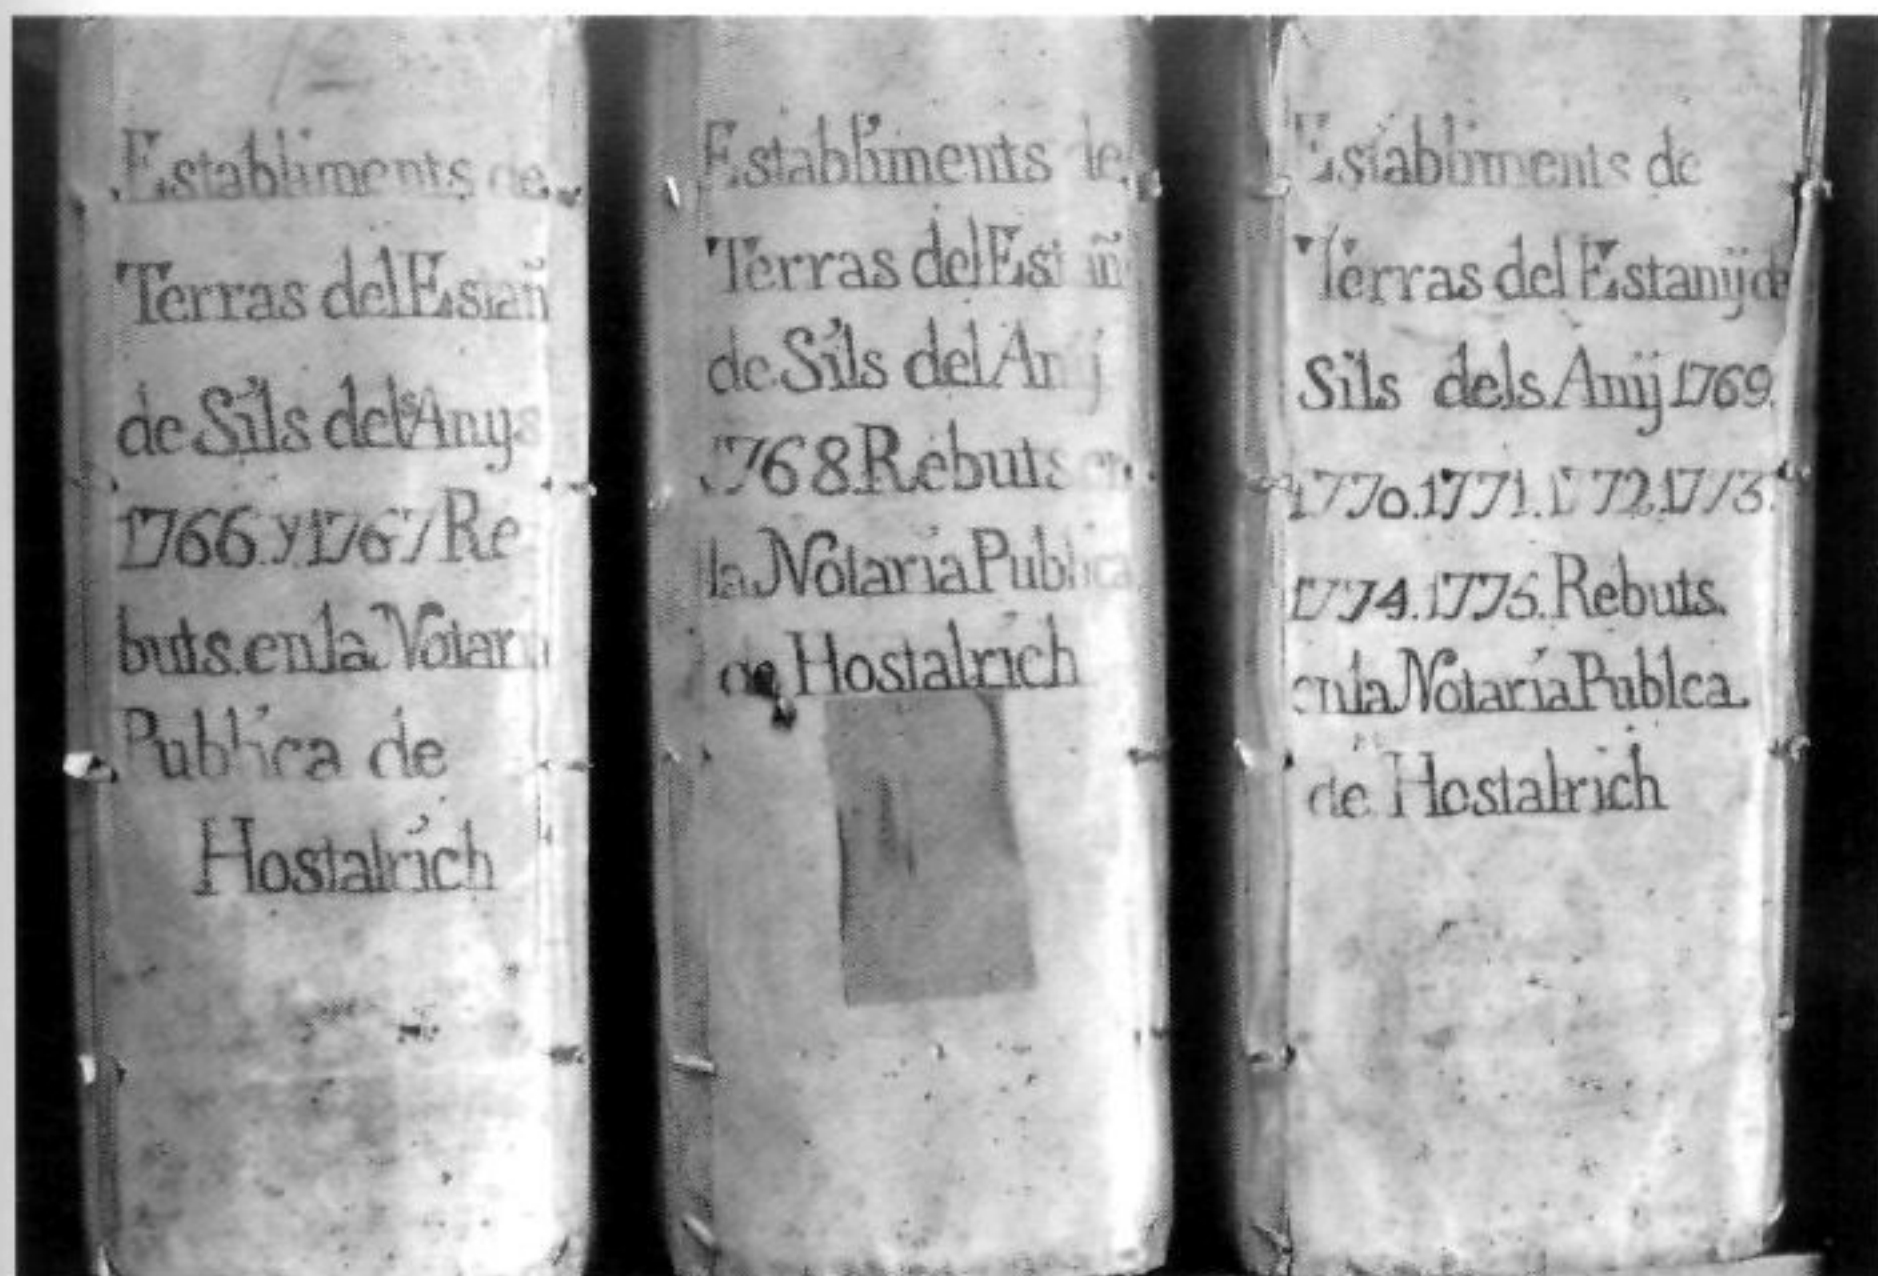 Establiments de
Terras del Estañ
de Sils dels Anys
1766 y 1767 Re
buts. en la Notari
Publica de
Hostalrich
Establiments de
Terras del Estañ
de Sils del Anÿ
1768 Rebuts en
la Notaria Publica
de Hostalrich
Establiments de
Terras del Estanÿ de
Sils dels Anÿ 1769.
1770.1771.1772.1773.
1774.1775. Rebuts.
en la Notaria Publca.
de Hostalrich